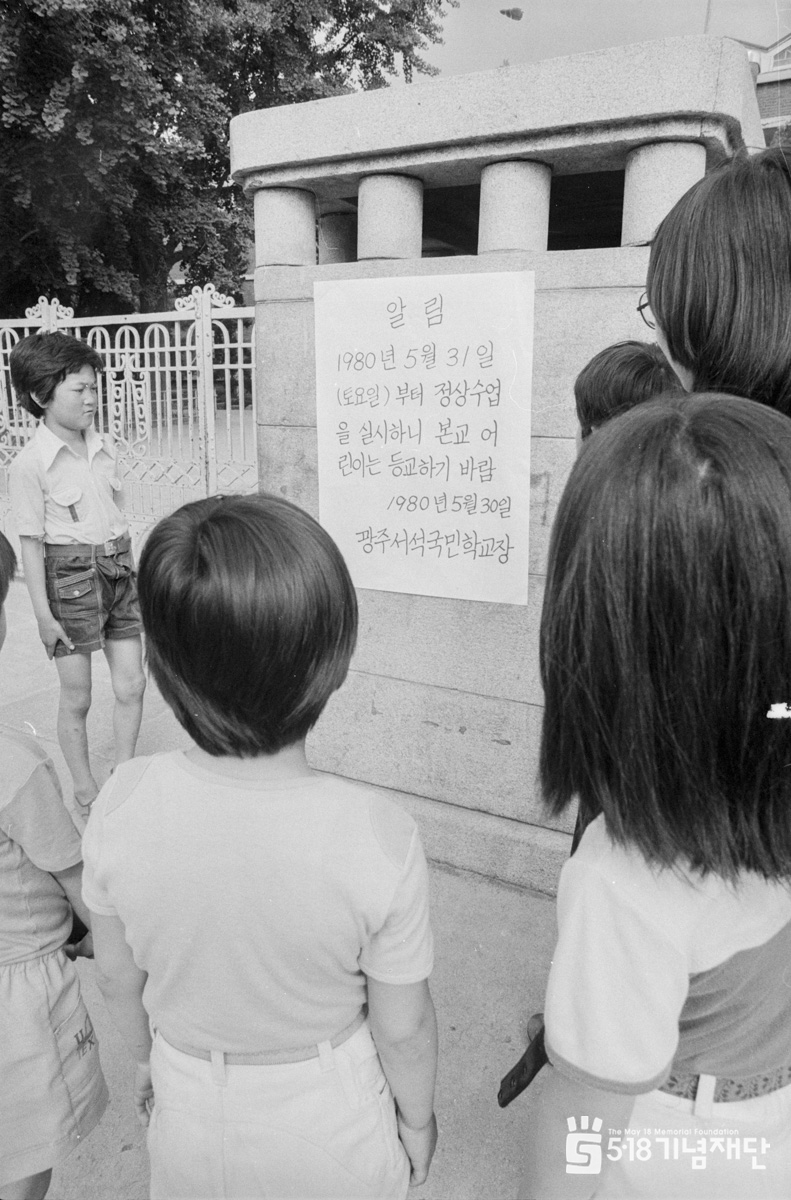 알 림
1980년 5월 31일
(토요일) 부터 정상수업
을 실시하니 본교 어
린이는 등교하기 바람
1980년 5월 30일
광주서석국민학교장
The May 18 Memorial Foundation
5·18기념재단